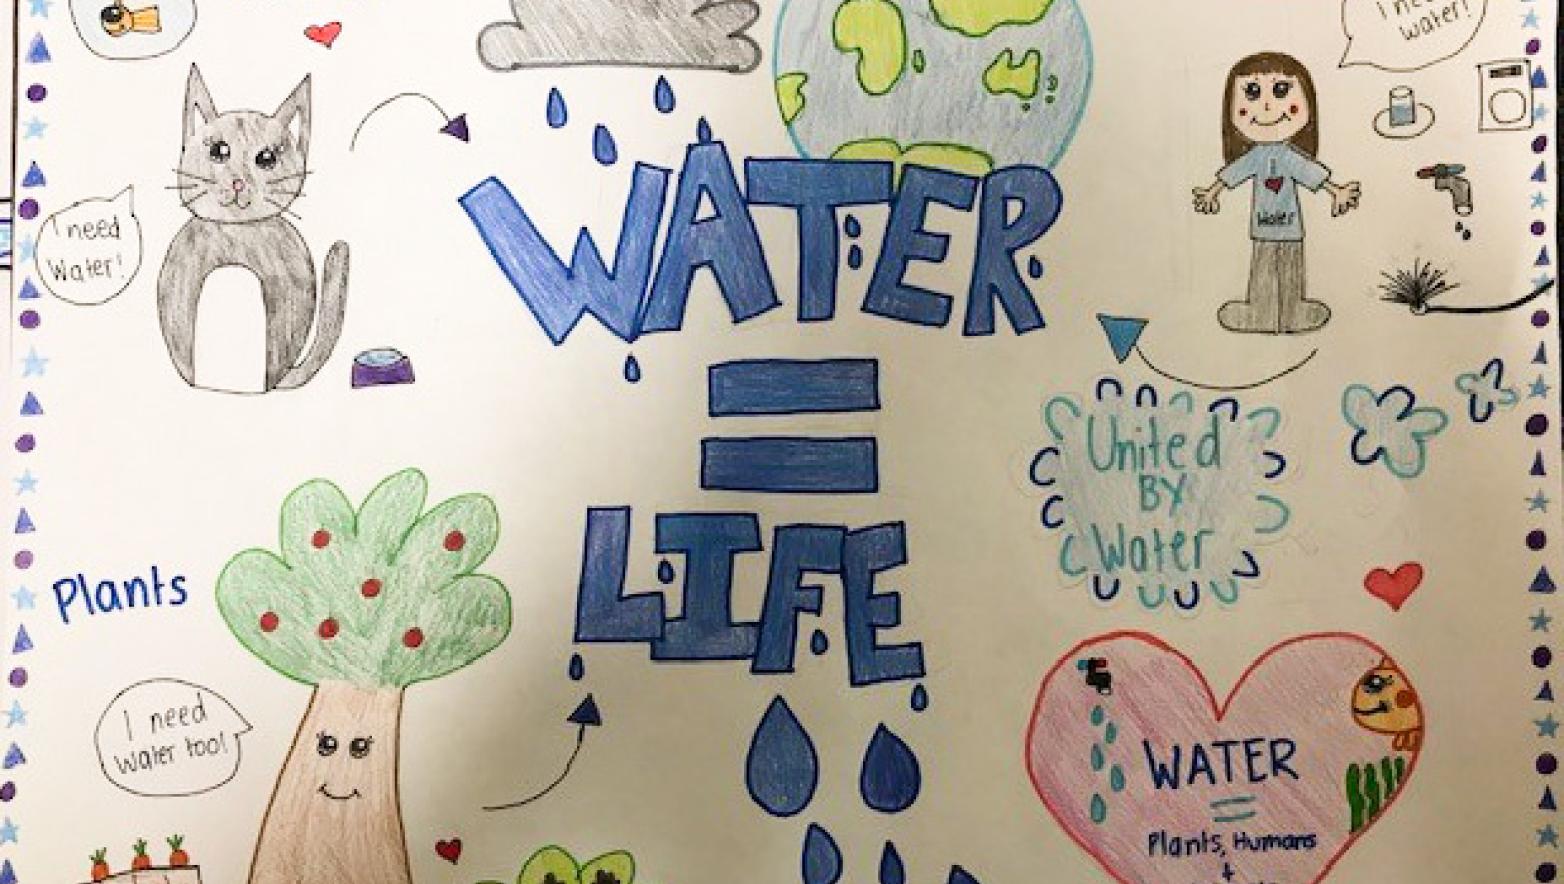 I need
Water!
I need
Water!
Water
WATER
=
LIFE
United
BY
Water
Plants
I need
Water too!
WATER
=
Plants, Humans
+